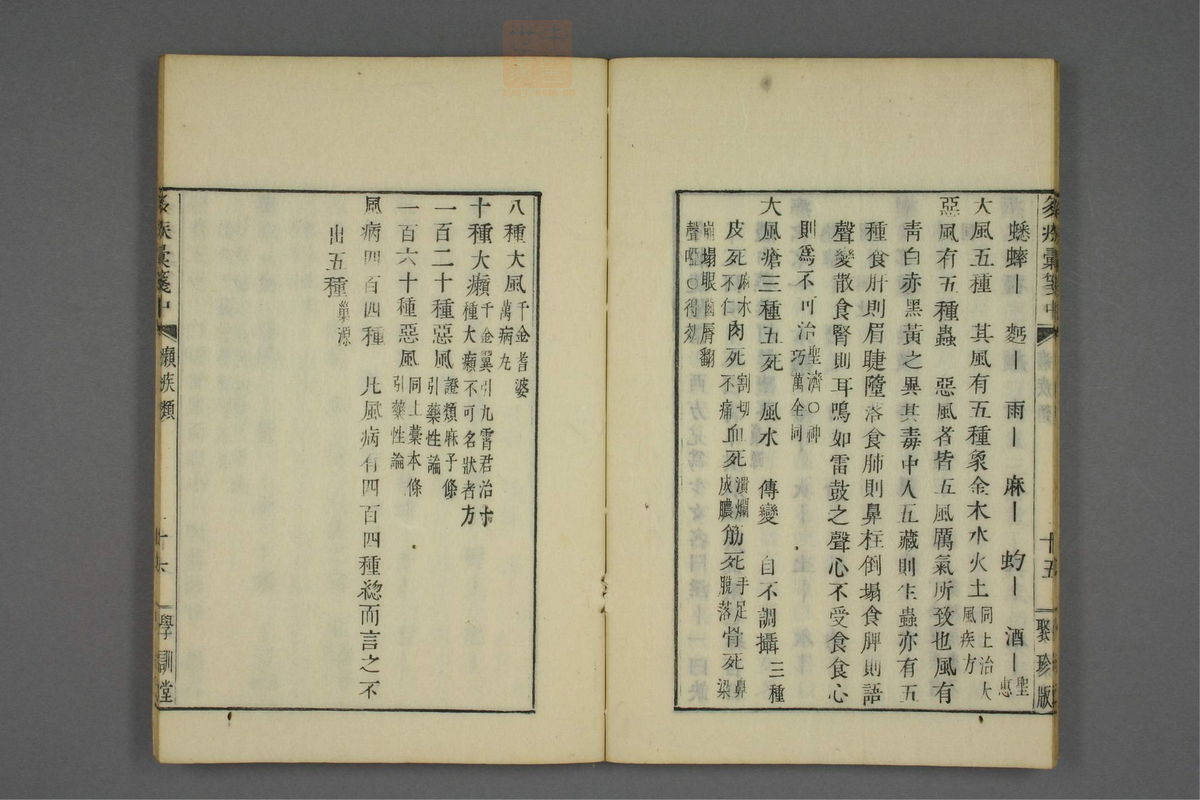 蟋蟀｜　麪｜　雨｜　麻｜　虳｜　酒｜聖惠
大風五種　其風有五種象金木水火土同上治大風疾方
惡風有五種蟲　惡風者皆五風厲氣所致也風有
青白赤黑黃之異其毒中人五藏則生蟲亦有五
種食肝則眉睫墮落食肺則鼻柱倒塌食脾則語
聲變散食腎則耳鳴如雷鼓之聲心不受食食心
則爲不可治聖濟○神巧萬全同
大風瘡三種五死　風水　傳變　自不調攝三種
皮死麻水不仁肉死割切不痛血死潰爛成膿筋死手足脫落骨死鼻梁
崩塌眼脣翻
聲啞○得効
聚珍版
十五
八種大風千金耆婆萬病丸
十種大癩千金翼引九霄君治十種大癩不可名狀者方
一百二十種惡風證類麻子條引藥性論
一百六十種惡風同上藁本條引藥性論
風病四百四種　凡風病有四百四種總而言之不
出五種巢源
疾彙箋中　癩疾類　十六　學訓堂